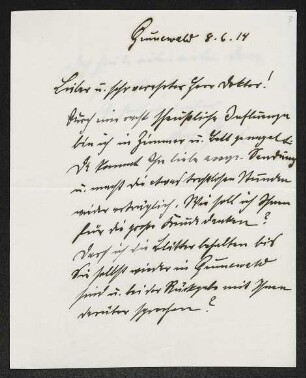 Grunewald 8.6.14
Lieber u. sehr verehrter Herr Doktor!
Durch eine recht scheußliche
bin ich in Zimmer u. Bett
Da kommt Ihre liebe Sendung
u. macht die etwas trostlosen Stunden
wieder erträglich. Wie soll ich Ihnen
für die große Freude danken?
Darf ich die Blätter behalten bis
Sie selbst wieder in Grunewald
sind u. bei der Rückgabe mit Ihnen
darüber sprechen?